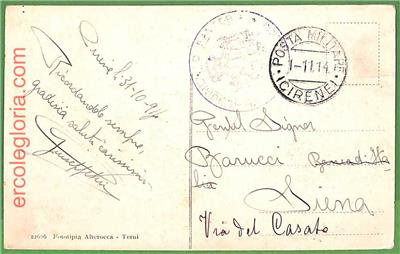 Cirene, 31-10-914
Ricordandolo sempre,
gradisca saluti carissimi
Giuseppe
POSTA MILITARE
1-11.14
(CIRENE)
Gentil Signor
Barucci Banca d'Ita
lia
Siena
Via del Casato
22696 Fototipia Alterocca - Terni
ercolegloria.com